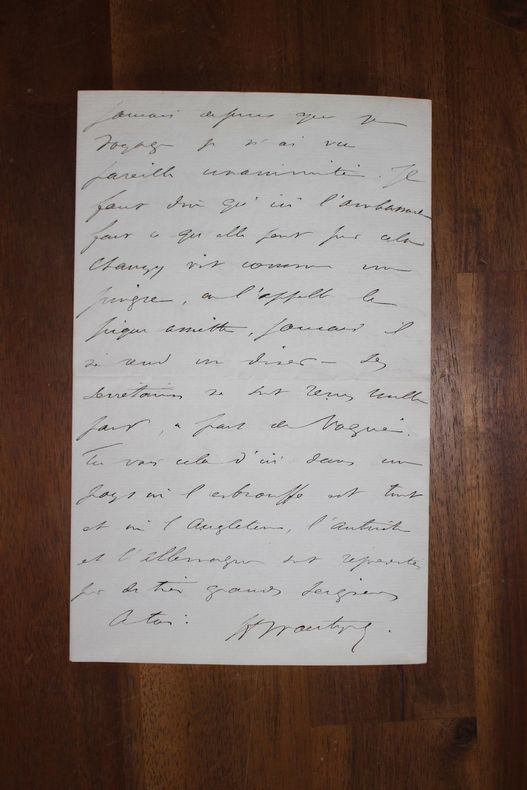 jamais depuis que je
voyage je n'ai vu
pareille unanimité. Il
faut dire qu'ici l'ambassade
fait ce qu'elle peut pour cela
Chanzy vit comme un
pingre, on l'appelle le
pique assiette, jamais il
ne rend un diner – Les
secretaires ne sont reçus nulle
part, à part de Vogüé.
Tu vois cela d'ici dans un
pays où l'esbrouffe est tout
et où l'Angleterre, l'autriche
et l'allemagne sont representées
par de très grands seigneurs
A toi.